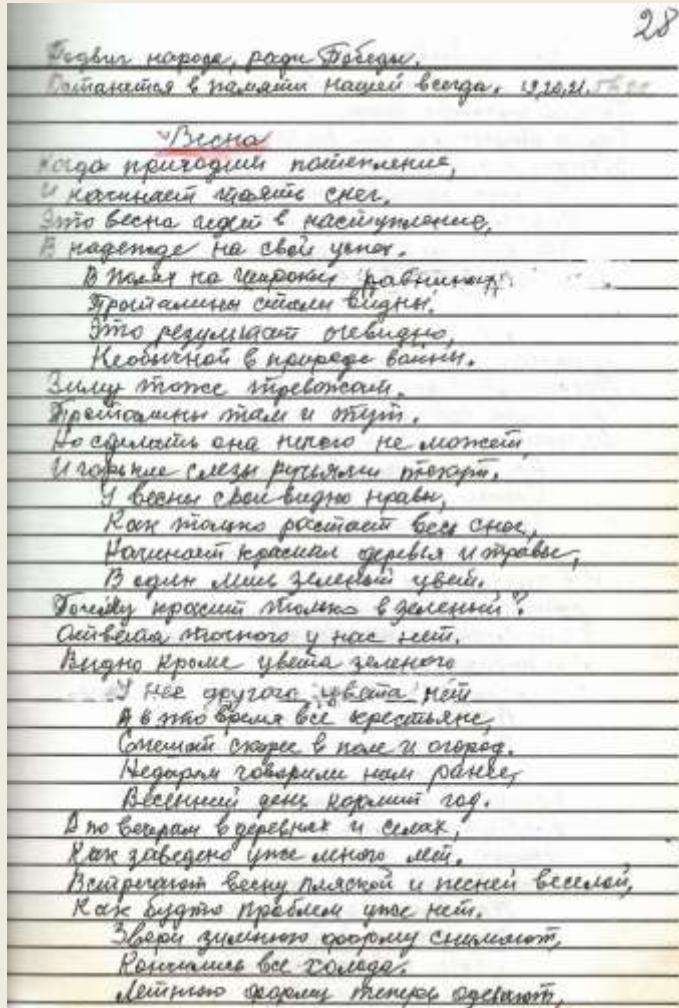 28
Подвиг народа, ради Победы,
Останется в памяти нашей всегда. 19,20,21.
Весна
Когда приходит потепление,
И начинает таять снег.
Это весна идет в наступление,
В надежде на свой успех.
В полях на широких равнинах
Проталины стали видны.
Это результат очевидно,
Необычной в природе войны.
Зиму тоже тревожат,
Проталины там и тут.
Но сделать она ничего не может,
И горькие слезы ручьями текут.
У весны свои видно нравы,
Как только растает весь снег,
Начинает красить деревья и травы,
В один лишь зеленый цвет.
Почему красит только в зеленый?
Ответа точного у нас нет.
Видно кроме цвета зеленого
У нее другого цвета нет
А в это время все крестьяне,
Спешат скорее в поле и огород.
Недаром говорили нам ранее,
Весенний день кормит год.
А по вечерам в деревнях и селах,
Как заведено уже много лет.
Встречают весну пляской и песней веселой,
Как будто проблем уже нет.
Звери зимнюю форму снимают,
Кончились все холода.
Летнюю форму теперь одевают,